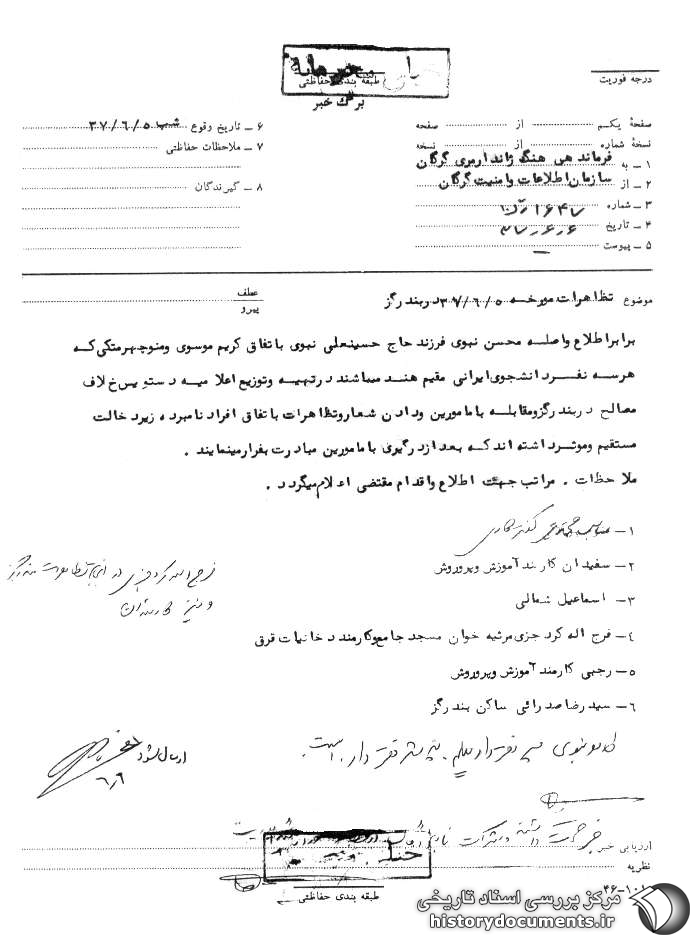 خیلی محرمانه
طبقه بندی حفاظتی
درجه فوریت
برگ خبر
صفحهٔ یکم از صفحه
نسخهٔ شماره از نسخه
۱ ـ به فرماندهی هنگ ژاندارمری گرگان
۲ ـ از سازمان اطلاعات و امنیت گرگان
۳ ـ شماره
۴ ـ تاریخ ۳۷٫۶٫۶
۵ ـ پیوست ـ
۶ ـ تاریخ وقوع شب ۳۷/۶/۵
۷ ـ ملاحظات حفاظتی
۸ ـ گیرندگان
موضوع تظاهرات مورخه ۳۷/۶/۵ دربندرگز
عطف
پیرو
برابر اطلاع واصله محسن نبوی فرزند حاج حسینعلی نبوی باتفاق کریم موسوی ومنوچهرمتکی که
هرسه نفر دانشجوی ایرانی مقیم هند میباشند درتهیه وتوزیع اعلامیه دستویس خلاف
مصالح دربندرگزومقابله با مامورین ودادن شعاروتظاهرات باتفاق افراد نامبرده زیردخالت
مستقیم وموثرداشته اند که بعدازدرگیری با مامورین مبادرت بفرارمینمایند .
ملاحظات . مراتب جهت اطلاع واقدام مقتضی اعلام میگردد .
۱ـ
۲ـ سفیدان کارمند آموزش وپرورش
۳ـ اسماعیل شمالی
۴ـ فرج اله کرد جزی مرثیه خوان مسجد جامع وکارمند دخانیات قرق
۵ـ رجبی کارمند آموزش وپرورش
۶ـ سیدرضاصدرائی ساکن بندرگز
ارسال شود
۶٫۶
ارزیابی خبر
نظریه
طبقه بندی حفاظتی
۴۶-۱۰۱
مرکز بررسی اسناد تاریخی
historydocuments.ir